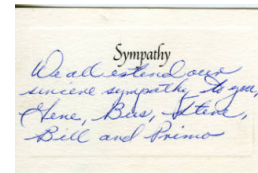 Sympathy
We all extend our
sincere sympathy to you,
Gene, Bus, Steve,
Bill and Primo